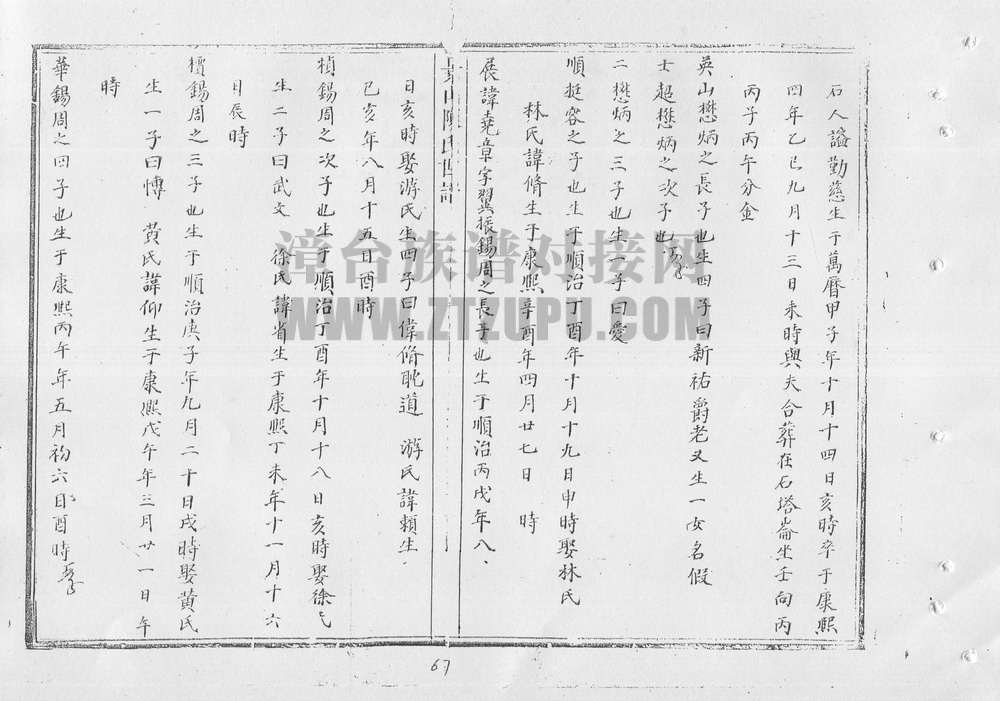 石人謚勤慈生于萬曆甲子年十月十四日亥時卒于康熙
四年乙巳九月十三日未時與夫合葬在石塔崙坐壬向丙
丙子丙午分金
英山懋炳之長子也生四子曰新祐爵老又生一女名假
士超懋炳之次子也
二懋炳之三子也生一子曰愛
順挺容之子也生于順治丁酉年十月十九日申時娶林氏
林氏諱脩生于康熙辛酉年四月廿七日 時
展諱堯章字翼振錫周之長子也生于順治丙戌年八
陳氏世譜
日亥時娶游氏生四子曰偉脩耽道 游氏諱賴生
己亥年八月十五日酉時
楨錫周之次子也生于順治丁酉年十月十八日亥時娶徐氏
生二子曰武文 徐氏諱省生于康熙丁未年十一月十六
日辰時
檟錫周之三子也生于順治庚子年九月二十日戌時娶黃氏
生一子曰愽 黃氏諱仰生于康熙戊午年三月廿一日午
時
華錫周之四子也生于康熙丙午年五月初六日酉時
67
漳台族谱对接网
WWW.ZTZUPU.COM